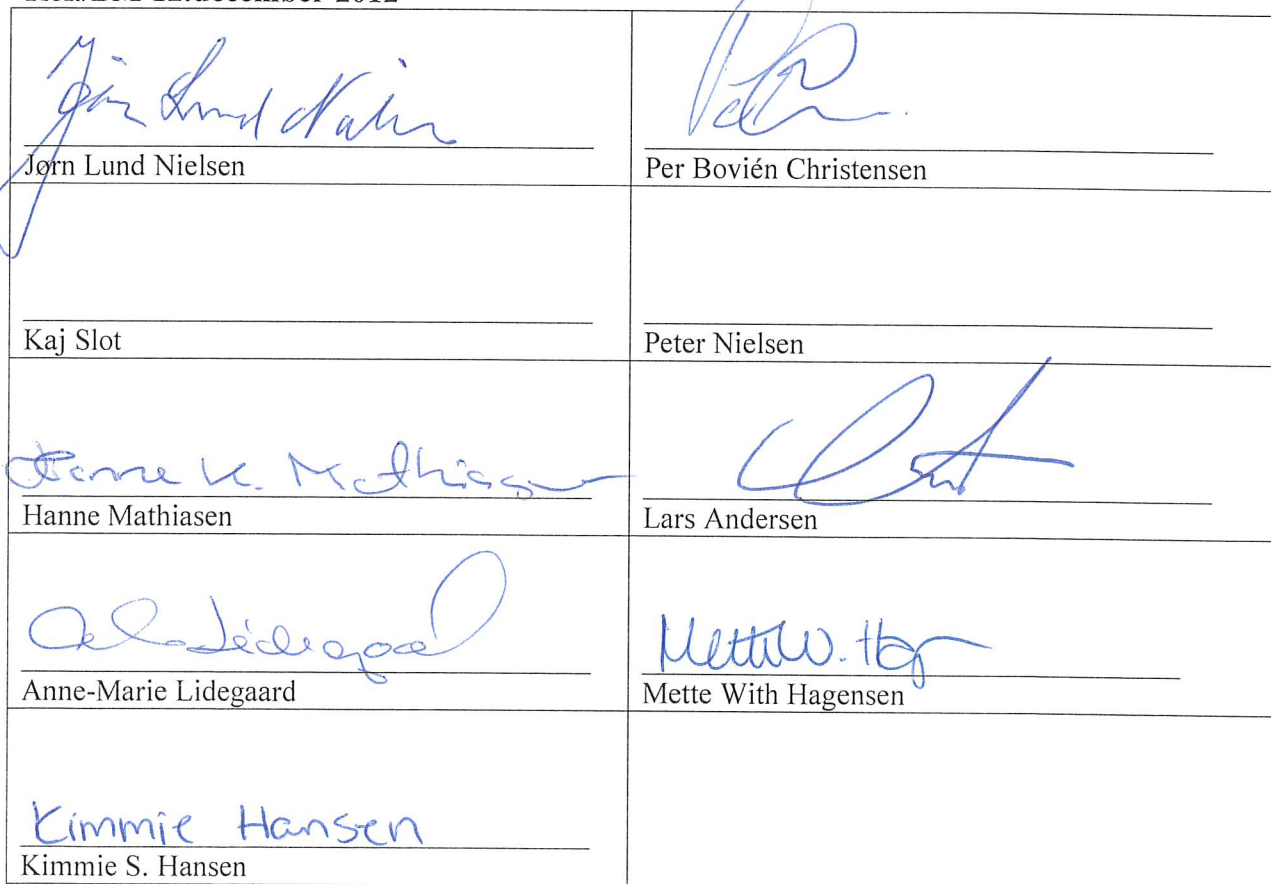 12.december 2012
Jørn Lund Nielsen
Per Bovién Christensen
Kaj Slot
Peter Nielsen
Hanne K. Mathiasen
Hanne Mathiasen
Lars Andersen
Lidegaard
Anne-Marie Lidegaard
Mette W. Hag
Mette With Hagensen
Kimmie Hansen
Kimmie S. Hansen